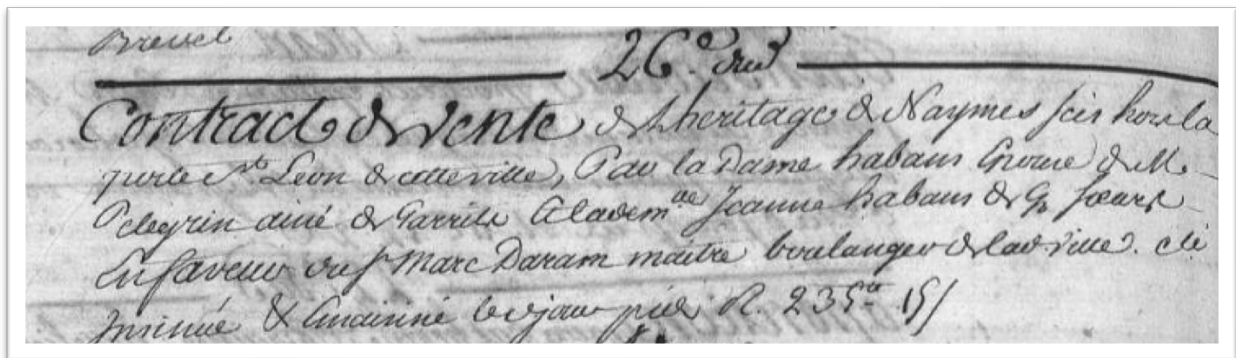 Brevet
26.e dud
Contract de vente de Lheritage de Naymes scis hors la
porte St. Leon de cette ville, Par la Dame habans Epouse de M.
Pelegrin ainé de Garrile a la dem.lle Jeanne habans de Soeurs
En faveur du Sr Marc Daram maitre boulanger de lad. ville. cte
Insinué & le jour R. 235